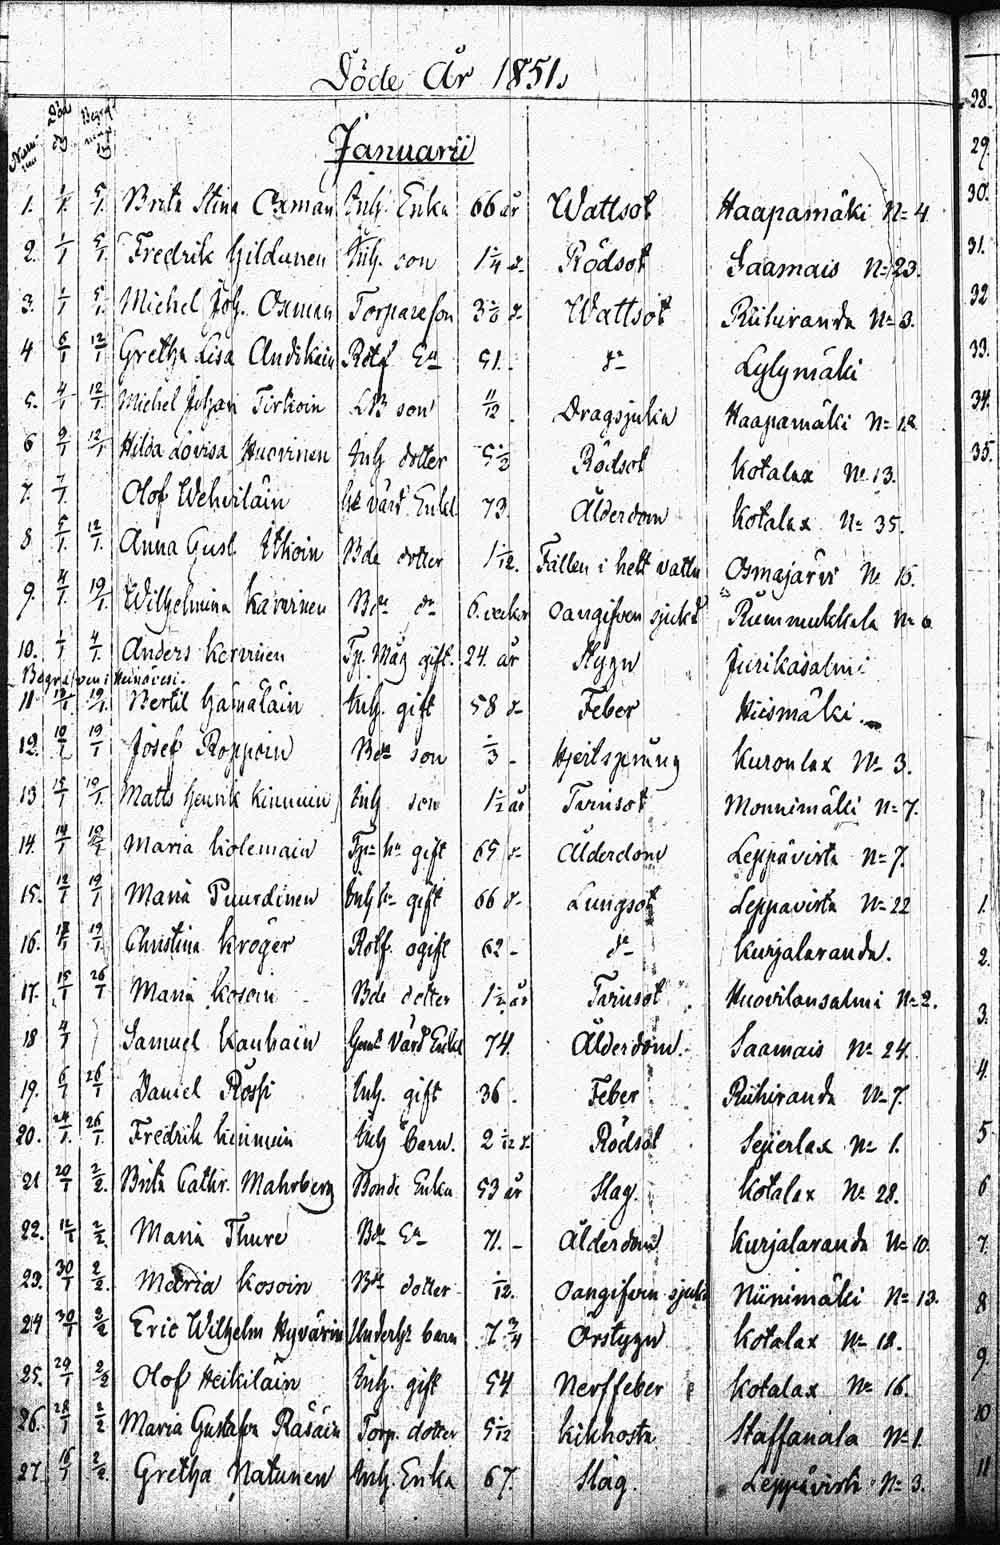 Döde År 1851.
Num Död dg Begrafnings dg
Januarii
1. 1/1. 5/1. Brita Stina Oxman Inh. Enka 66 år Wattsot Haapamäki N= 4
2. 1/1 5/1 Fredrik Hildunen Inh. son 1 1/4 d- Rödsot Saamais N= 23.
3. 1/1 5/1. Michel Joh. Oxman Torpareson d- Wattsot Riihiranda N= 3.
4 6/1 12/1 Gretha Lisa Andikain Rotf E- 51. d- Lylymäki
5. 4/1 12/1. Michel Johan Tirkoin son 11/12. Dragsjuka Haapamäki N=
6 9/1 12/1 Hilda Lovisa Huovinen Inh dotter 5 1/2 Rödsot Kotalax N= 13.
7. 7/1. Olof Wehviläin värd Enkl 73. Ålderdom Kotalax N= 35.
8 5/1. 12/1. Anna Gust. Itkoin Bde dotter 1 1/12. Fallen i hett vatten Osmajärvi N= 16.
9. 4/1. 19/1. Wilhelmina Kaverinen Bde d- 6. veckor oangifven sjukd Rummukkala N=
10. 1/1 4/1. Anders Kervinen Tp. Måg gift. 24. år Stygn Jurikäsalmi
Begrafven i Heinävesi.
11 19/1. Bertil Hämäläin Inh. gift 58 d- Feber Hiismäki.
12. 10/1 19/1 Josef Roppoin Bde son 1/3 - Hjertsprång Kuronlax N= 3.
13 15/1 19/1. Matts Henrik Kinnuin Inh. son 1 1/2 år Tvinsot Monnimäki N= 7.
14. 14/1 19/1 Maria Kolemain Tp= h= gift 65 d- Ålderdom Leppävirta N= 7.
15. 12/1 19/1 Maria Puurdinen Inh h= gift 66 d- Lungsot Leppävirta N= 22
16. 19/1. Christina Kröger Rotf. ogift 62 - d- Kurjalaranda.
17. 15/1 26/1 Maria Kosoin Bde dotter 1 1/2 år Tvinsot Huovilansalmi N= 2.
18 4/1 Samuel Kauhain Värd Enkl 74. Ålderdom. Saamais N= 24.
19. 6/1 26/1 Daniel Röshi Inh. gift 36. Feber Riihiranda N= 7.
20. 24/1. 26/1. Fredrik Kinnuin Inh barn. 2 1/12 d- Rödsot Seiierlax N= 1.
21 20/1 2/2. Brita Cathr. Mahrberg Bonde Enka 53 år Slag. Kotalax N= 28.
22. 12/1 2/2. Maria Thure Bde E- 71. - Ålderdom Kurjalaranda N= 10.
23. 30/1 2/2. Maria Kosoin Bde dotter 1/12. Oangifven sjukd Niinimäki N= 13.
24 30/1 2/2 Eric Wilhelm Hyvärin Underh= barn 7 3/4 Orstygn Kotalax N= 18.
25. 29/1 2/2 Olof Heikiläin Inh. gift 54 Nerffeber Kotalax N= 16.
26. 28/1 2/2 Maria Gustafva Räsäin Torp. dotter 5 1/12 Kikhosta Staffanala N= 1.
27. 16/1 2/2. Gretha Natunen Inh. Enka 67. Slag. Leppävirta N= 3.
28.
29.
30.
31.
32
33.
34.
35.
1.
2.
3.
4.
5
6
7.
8
9.
10
11